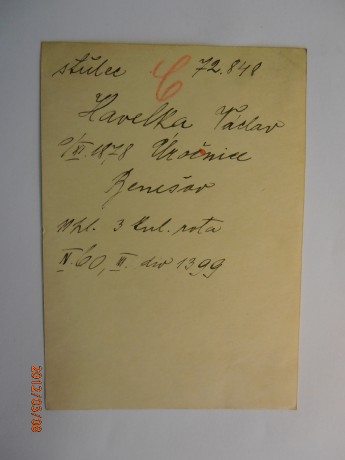 střelec C 72.848
Havelka Václav
9/XI.1878 Úročnice
Benešov
3 kul. rota
IV.60, III. 1399
2012/05/08